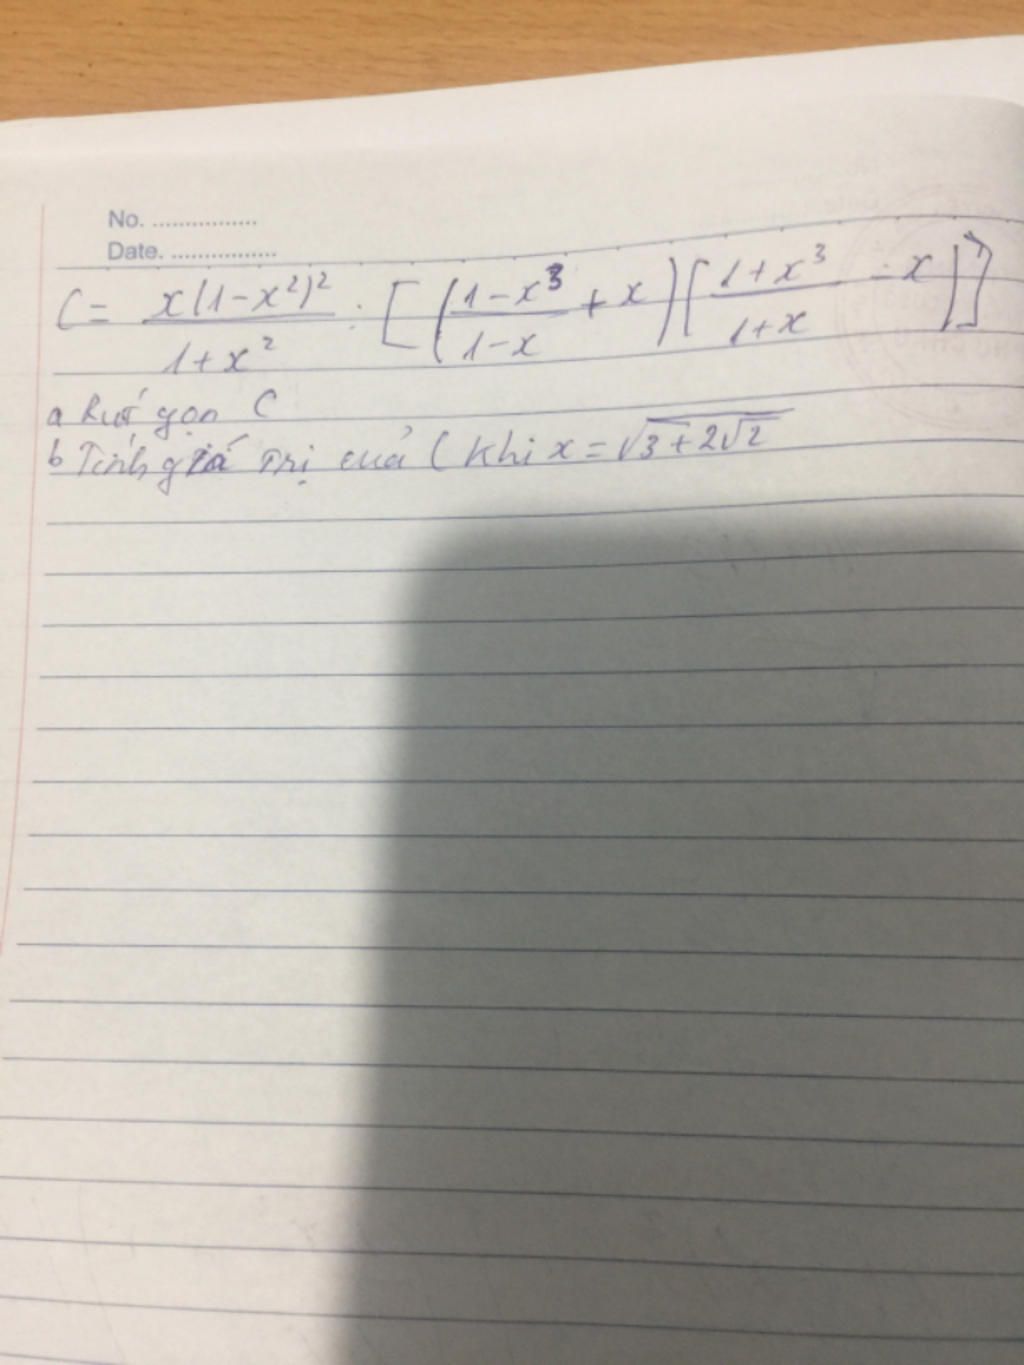 No. ................
Date. ................
C = x(1-x²)² / 1+x² : [(1-x³ / 1-x + x)(1+x³ / 1+x - x)]
a Rút gọn C
b Tính giá trị của C khi x = √3+2√2